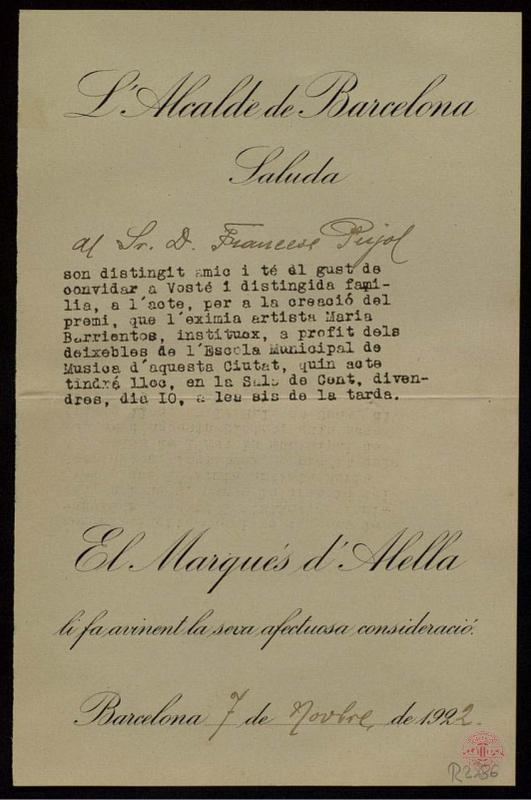 L'Alcalde de Barcelona
Saluda
al Sr. D. Francesc Pujol
son distingit amic i té el gust de
convidar a Vosté i distingida famí-
lia, a l'acte, per a la creació del
premi, que l'eximia artista Maria
Barrientos, instituex, a profit dels
deixebles de l'Escola Municipal de
Musica d'aquesta Ciutat, quin acte
tindrá lloc, en la Sala de Cent, diven-
dres, dia IO, a les sis de la tarda.
El Marqués d'Alella
li fa avinent la seva afectuosa consideració.
Barcelona 7 de Novbre, de 1922.
R2286